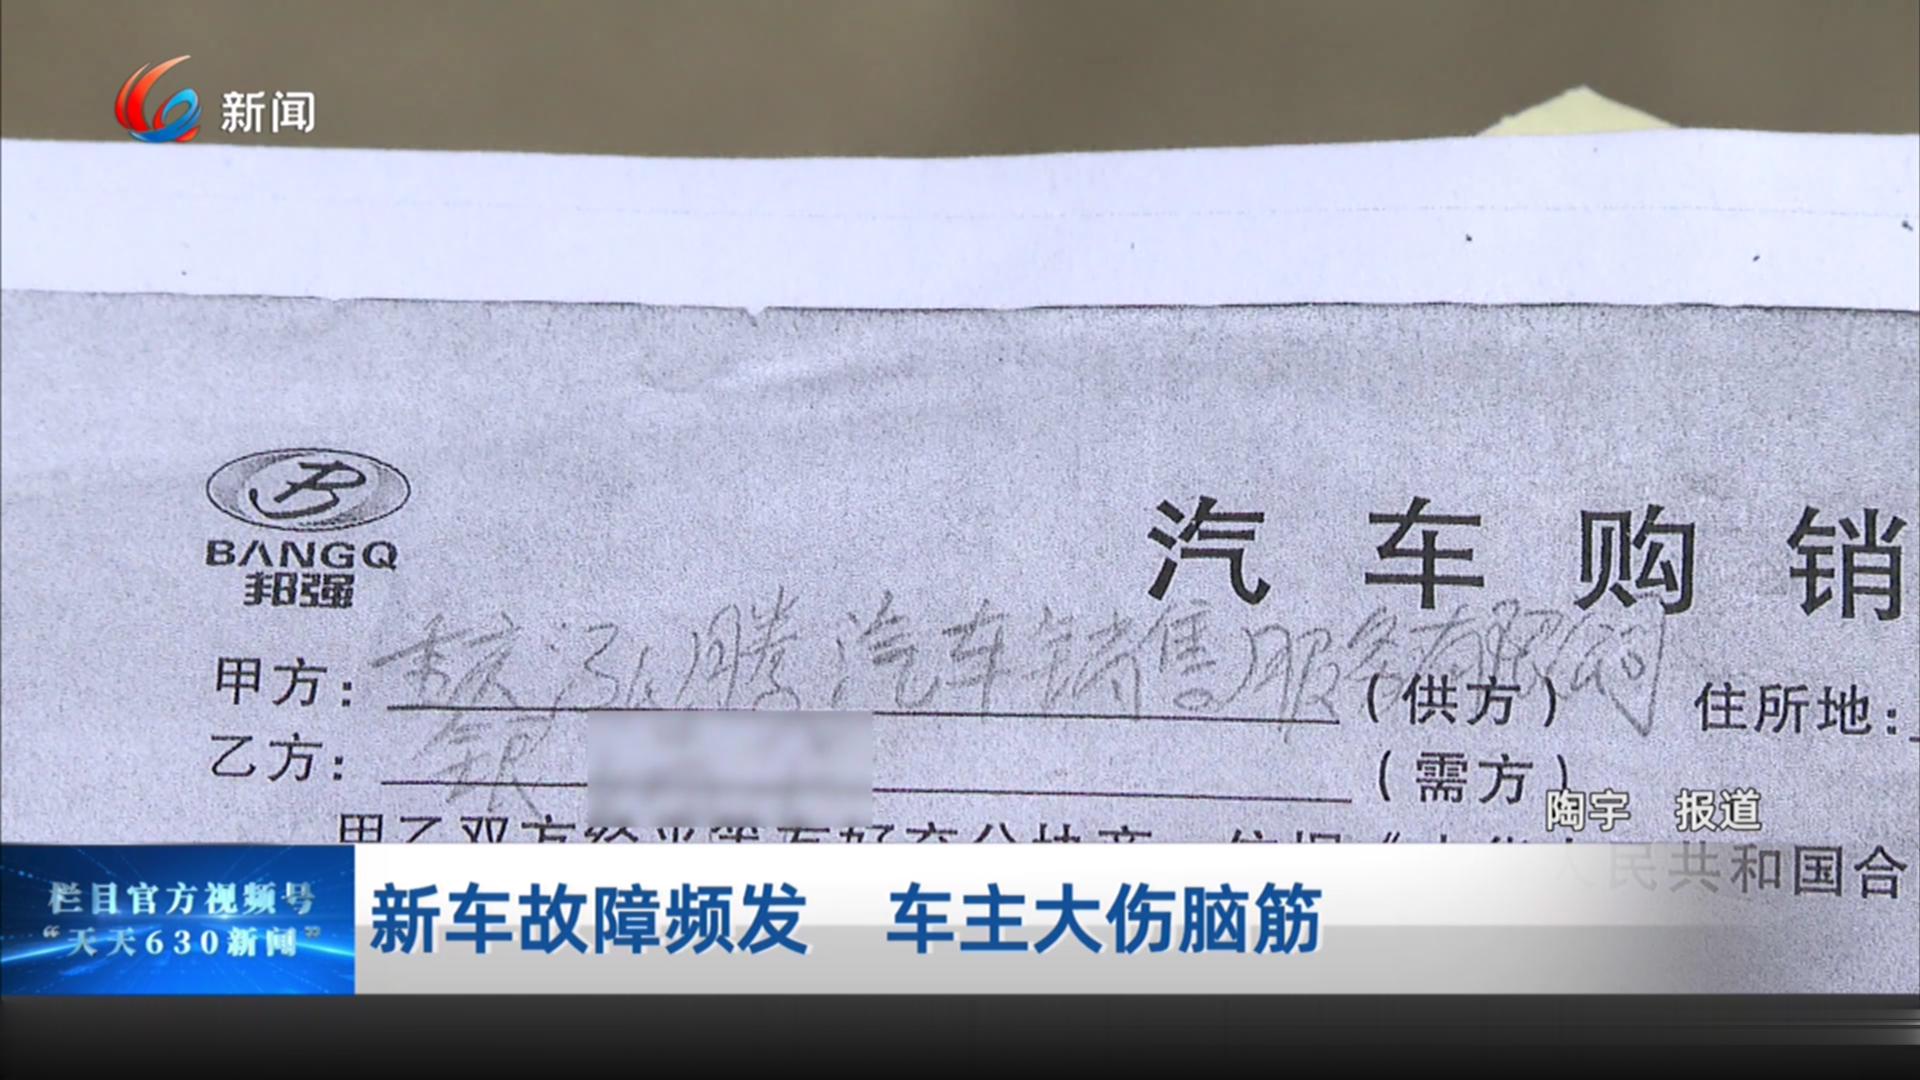 新闻
BANGQ
邦强
汽车购销
甲方：重庆泓腾汽车销售服务有限公司（供方） 住所地：
乙方：银（需方）
陶宇 报道
人民共和国合
栏目官方视频号
“天天630新闻”
新车故障频发 车主大伤脑筋